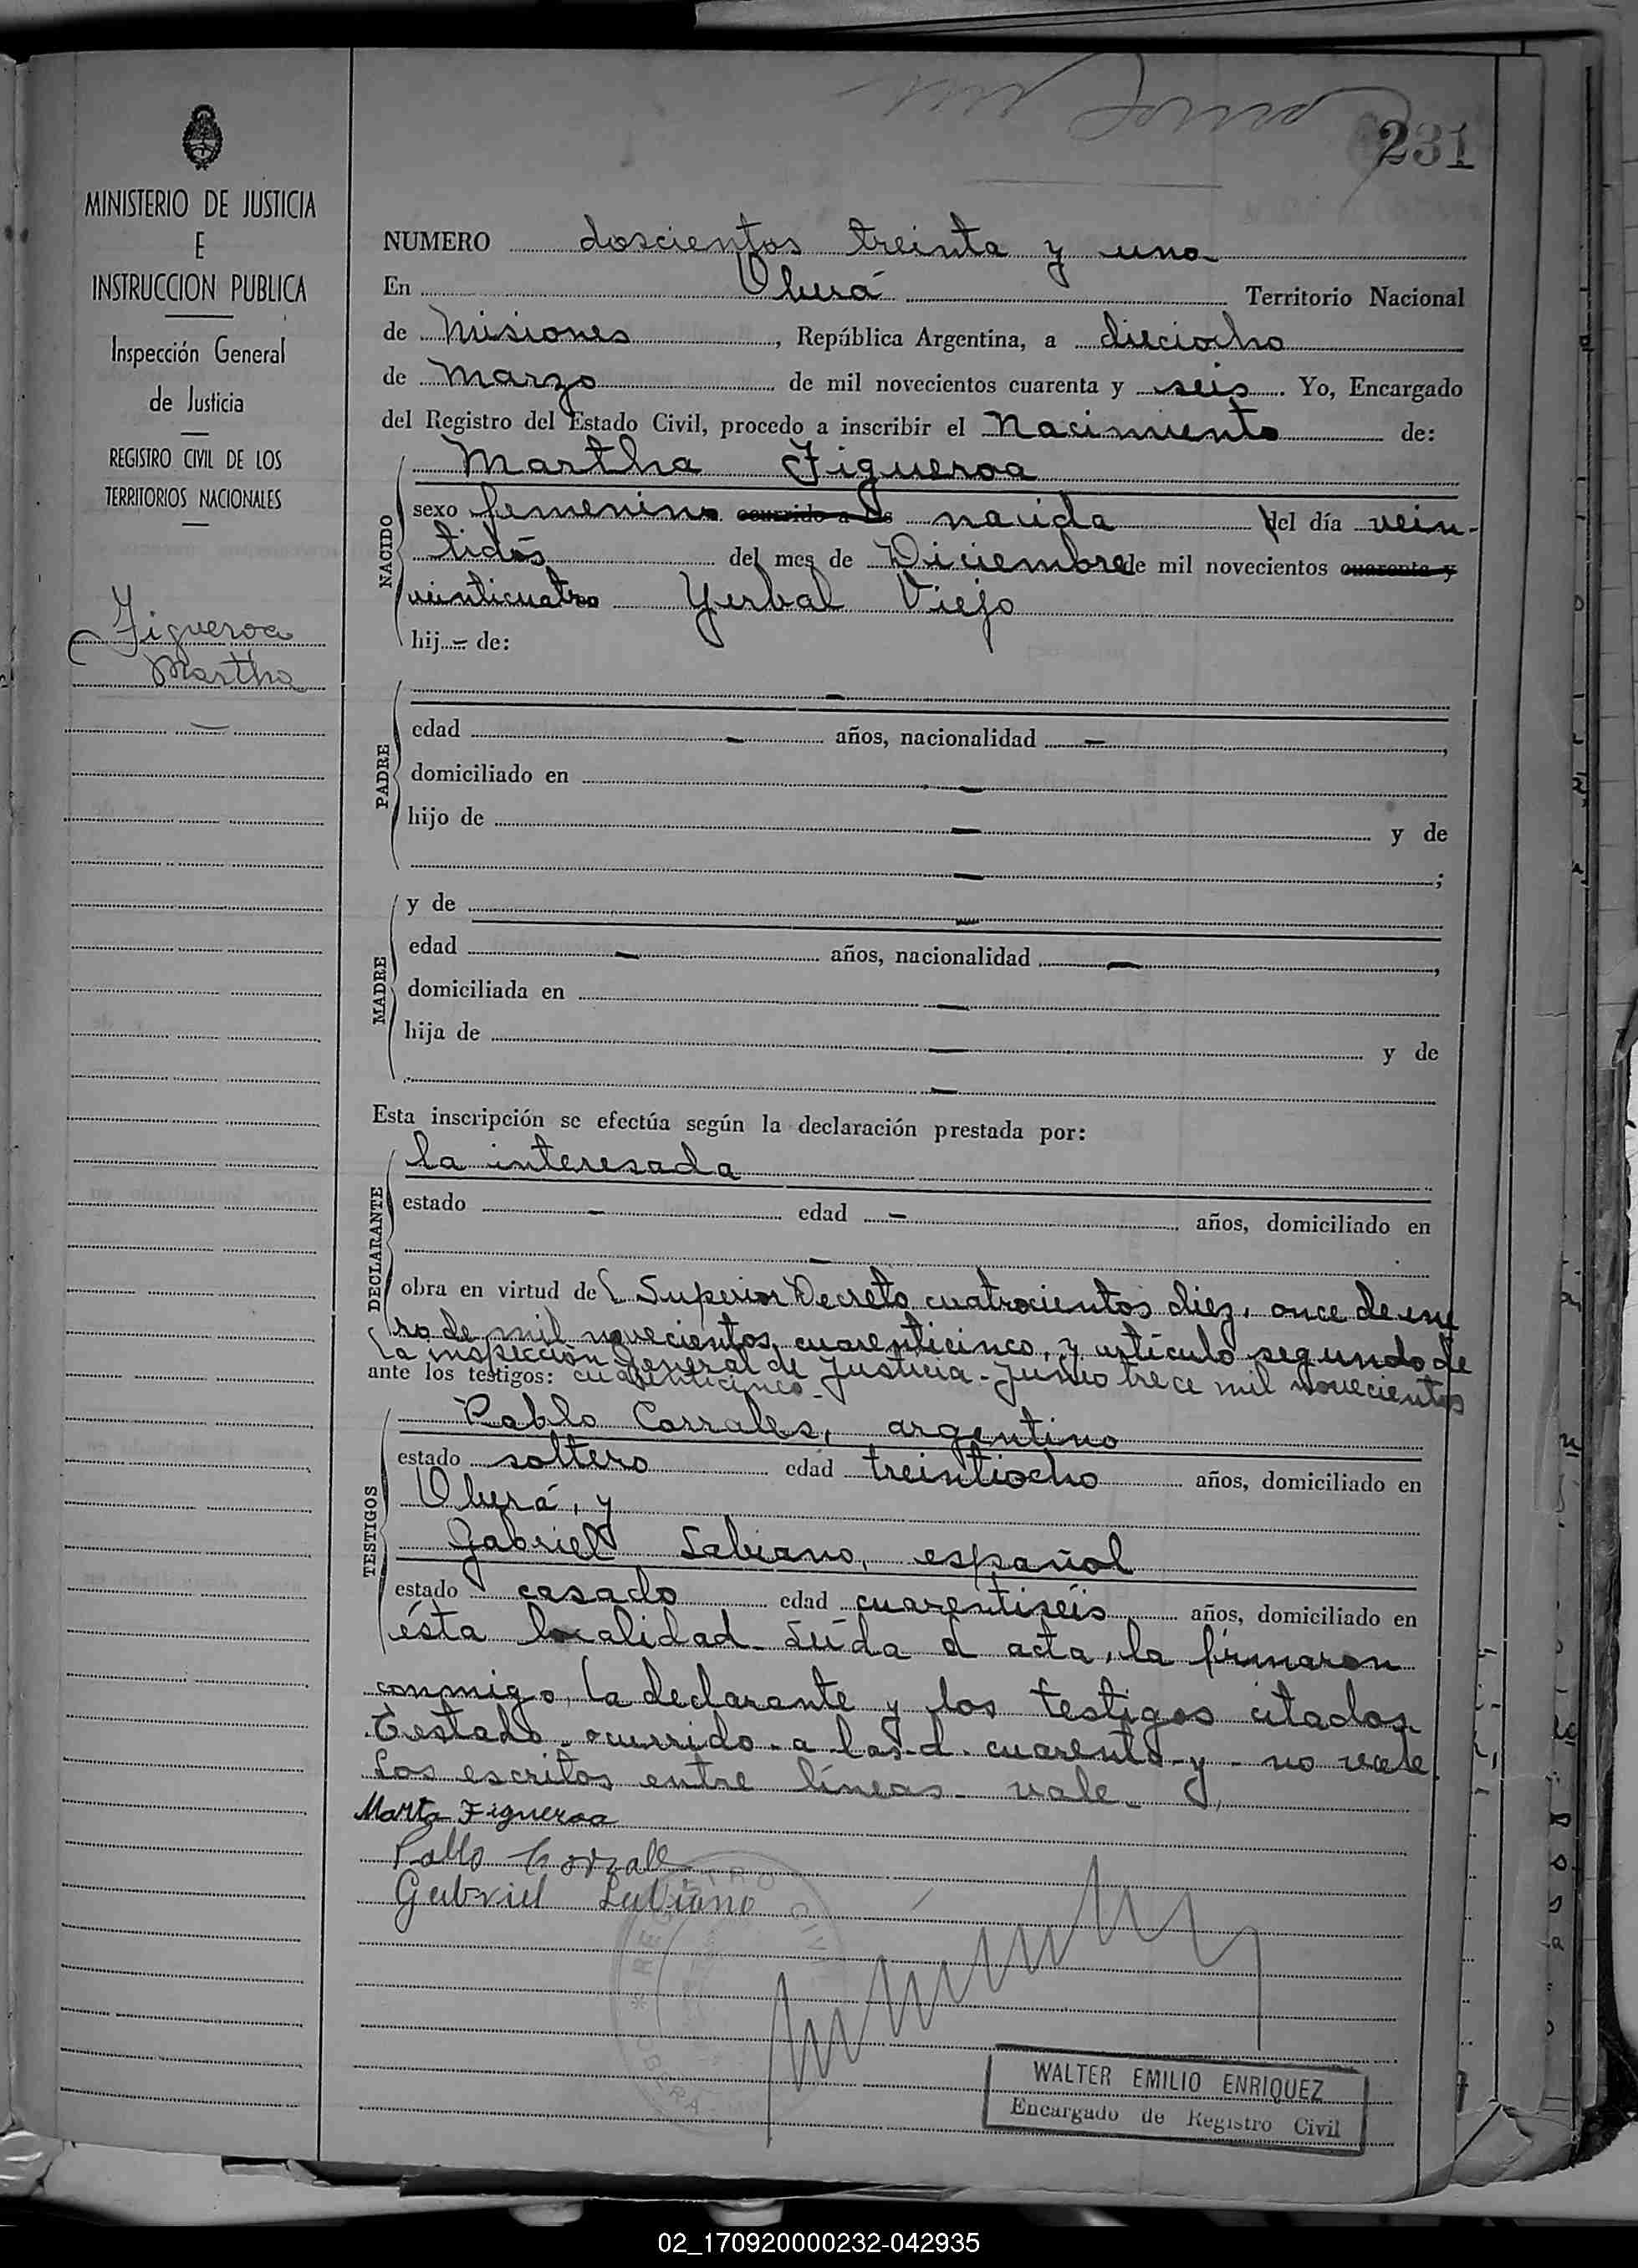 231
MINISTERIO DE JUSTICIA
E
INSTRUCCION PUBLICA
Inspección General
de Justicia
REGISTRO CIVIL DE LOS
TERRITORIOS NACIONALES
Figueroa
Martha
NUMERO doscientos treinta y uno
En Oberá Territorio Nacional
de Misiones, República Argentina, a dieciocho
de Marzo de mil novecientos cuarenta y seis. Yo, Encargado
del Registro del Estado Civil, procedo a inscribir el Nacimiento de:
NACIDO
Martha Figueroa
sexo femenino ocurrido a las nacida del día vein-
tidós del mes de Diciembre de mil novecientos cuarenta y
veinticuatro Yerbal Viejo
hij— de:
PADRE
—
edad — años, nacionalidad —,
domiciliado en —
hijo de — y de
—;
MADRE
y de —
edad — años, nacionalidad —,
domiciliada en —
hija de — y de
—
Esta inscripción se efectúa según la declaración prestada por:
DECLARANTE
la interesada
estado — edad — años, domiciliado en
—
obra en virtud del Superior Decreto cuatrocientos diez, once de ene
ro de mil novecientos cuarenticinco, y artículo segundo de
la inspección General de Justicia - Junio trece mil novecientos
ante los testigos: cuarenticinco-
TESTIGOS
Pablo Corrales, argentino
estado soltero edad treintiocho años, domiciliado en
Oberá, y
Gabriel Labiano, español
estado casado edad cuarentiséis años, domiciliado en
ésta localidad- Leída el acta, la firmaron
conmigo, la declarante y los testigos citados-
Testado- ocurrido- a las- d- cuarenta- y- no vale.
Los escritos entre líneas- vale-
Marta Figueroa
Pablo Corrales
Gabriel Labiano
REGISTRO CIVIL
OBERA
WALTER EMILIO ENRIQUEZ
Encargado de Registro Civil
02_170920000232-042935